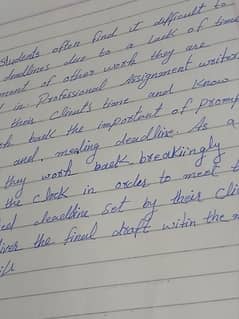 students often find it difficult to
deadlines due to a lack of time
ment of other work they are
in Professional Assignment writer
their client's time and know
back the important of promp
and, meating deadline. As a
they work back breakiingly
the clock in order to meet t
deadline set by their cli
the final draft witin the